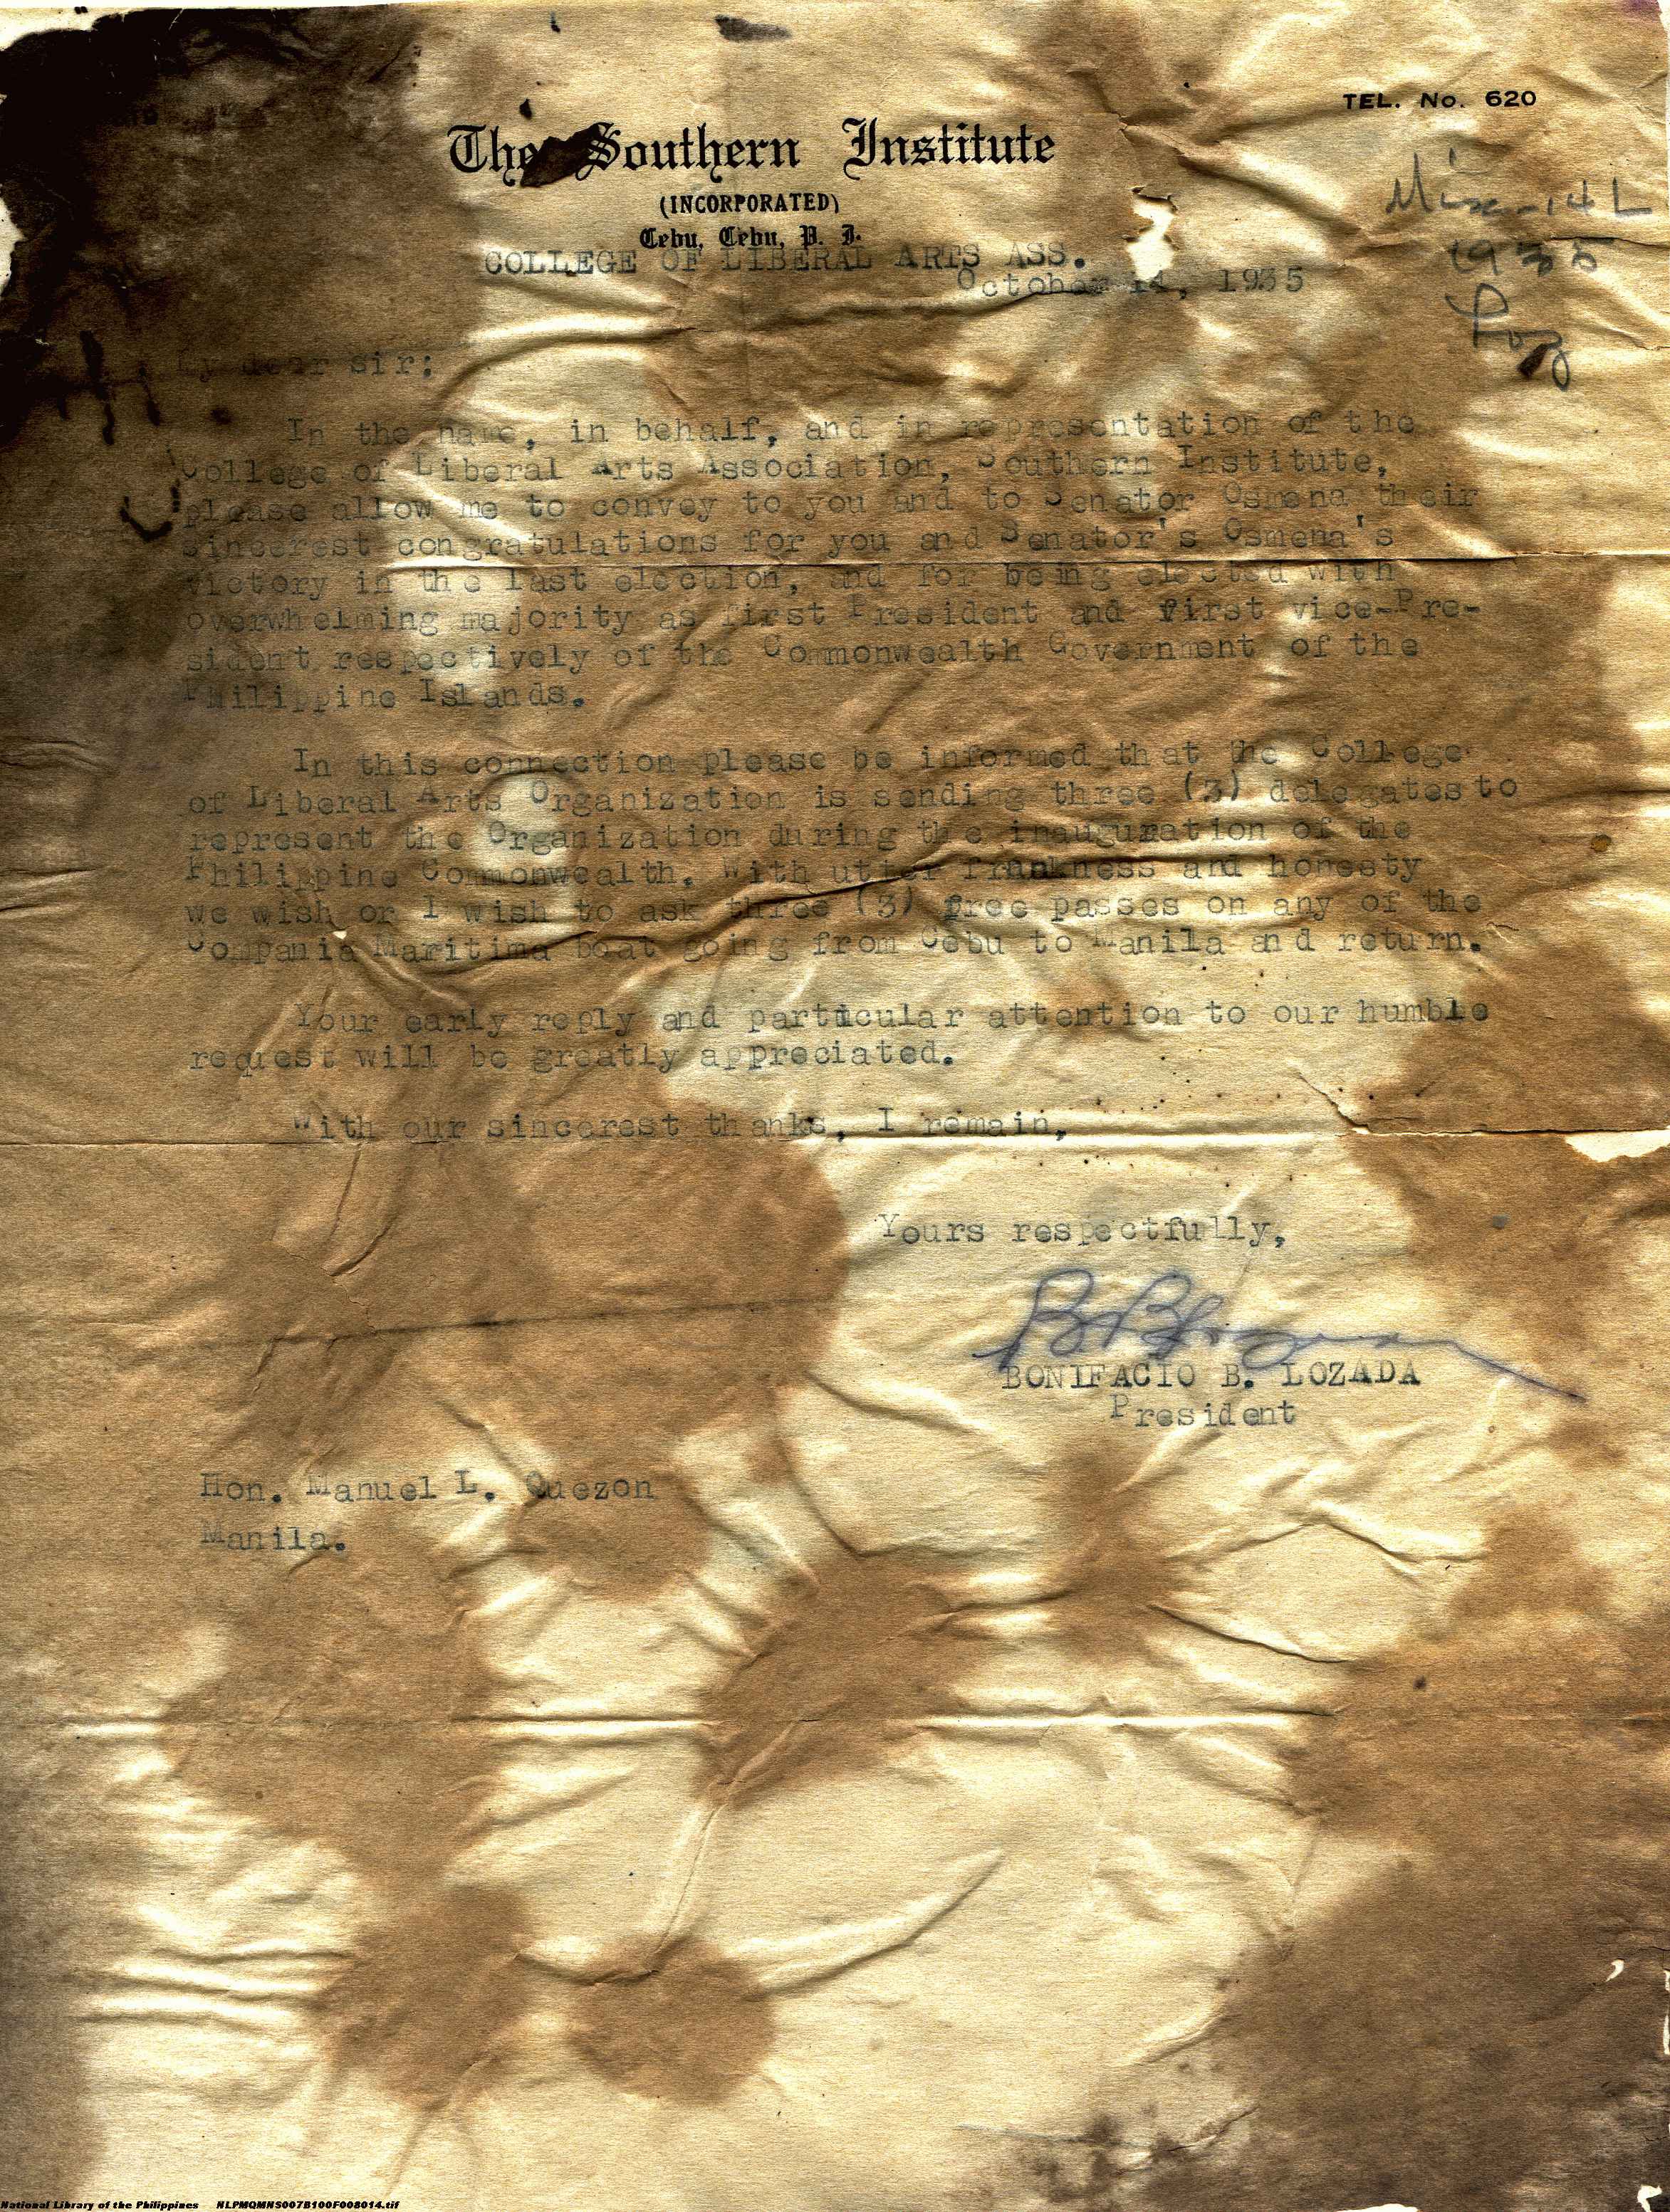 TEL. No. 620
The Southern Institute
(INCORPORATED)
Cebu, Cebu, P. I.
COLLEGE OF LIBERAL ARTS ASS.
October 14, 1935
1935
My dear sir:
In the name, in behalf, and in representation of the
College of Liberal Arts Association, Southern Institute,
please allow me to convey to you and to Senator Osmena their
sincerest congratulations for you and Senator's Osmena's
victory in the last election, and for being elected with
overwhelming majority as first President and first vice-Pre-
sident respectively of the Commonwealth Government of the
Philippine Islands.
In this connection please be informed that the College
of Liberal Arts Organization is sending three (3) delegates to
represent the Organization during the inauguration of the
Philippine Commonwealth. With utter frankness and honesty
we wish or I wish to ask three (3) free passes on any of the
Compania Maritima boat going from Cebu to Manila and return.
Your early reply and particular attention to our humble
request will be greatly appreciated.
With our sincerest thanks, I remain,
Yours respectfully,
BONIFACIO B. LOZADA
President
Hon. Manuel L. Quezon
Manila.
National Library of the Philippines NLPMQMNS007B100F008014.tif